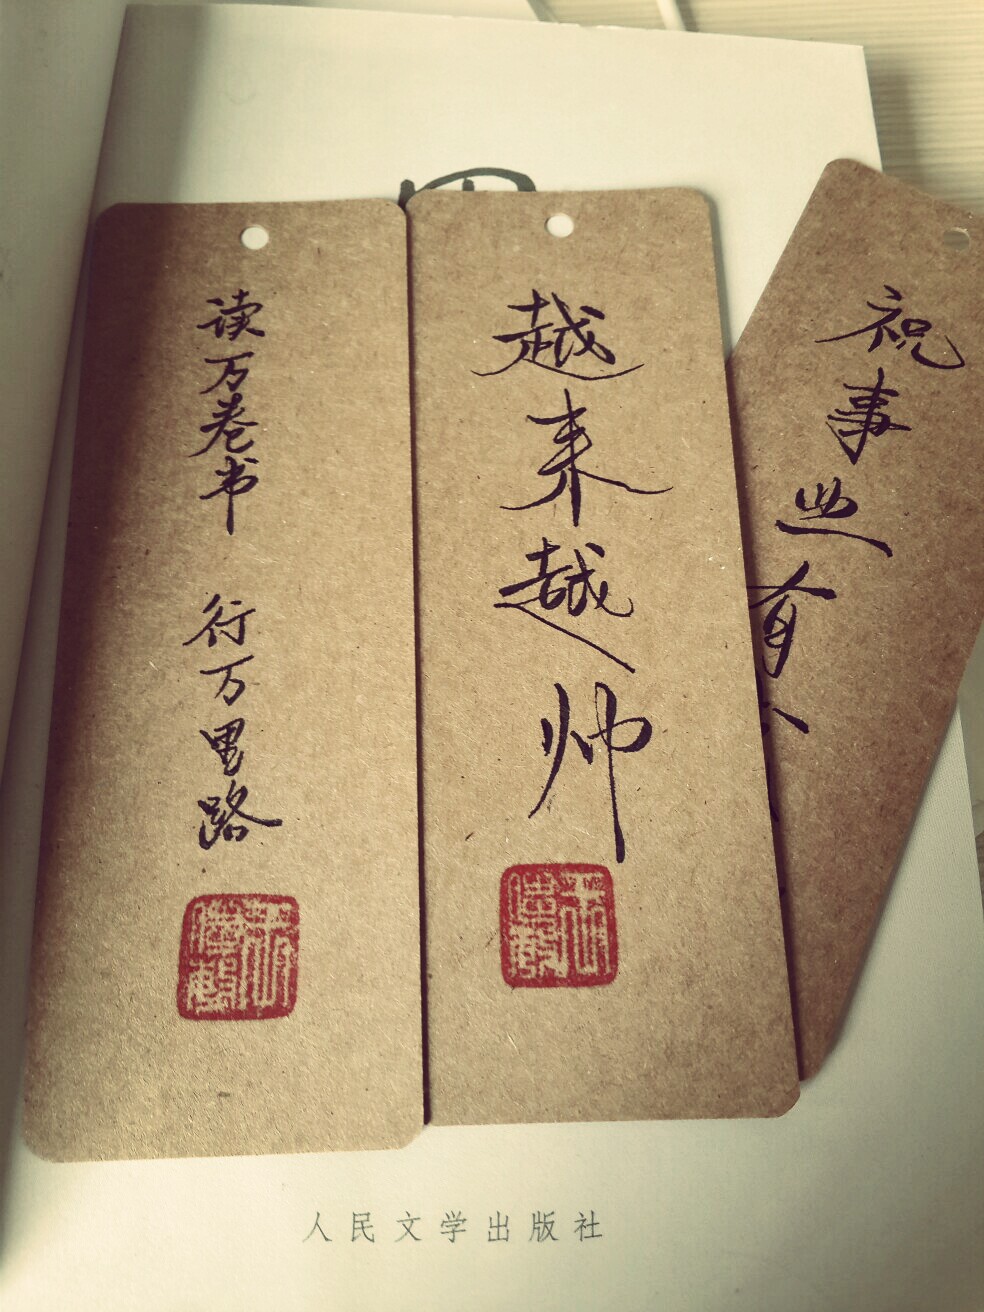 读万卷书 行万里路
越来越帅
祝事业有
人民文学出版社